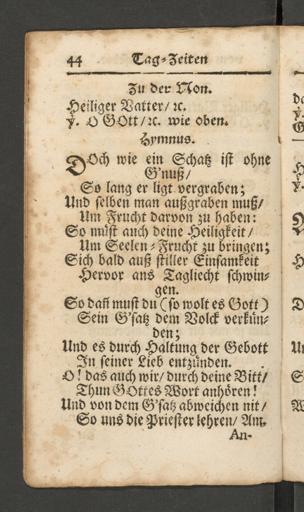 44 Tag-Zeiten
Zu der Non.
Heiliger Vatter/ ꝛc.
℣. O GOtt/ ꝛc. wie oben.
Hymnus.
DOch wie ein Schatz ist ohne
G'nuß/
So lang er ligt vergraben;
Und selben man außgraben muß/
Um Frucht darvon zu haben:
So můst auch deine Heiligkeit/
Um Seelen-Frucht zu bringen;
Sich bald auß stiller Einsamkeit
Hervor ans Tagliecht schwin-
gen.
So dañ must du (so wolt es Gott)
Sein G'satz dem Volck verkün-
den;
Und es durch Haltung der Gebott
In seiner Lieb entzünden.
O! das auch wir/ durch deine Bitt/
Thun GOttes Wort anhören!
Und von dem G'satz abweichen nit/
So uns die Priester lehren/ Am.
An-